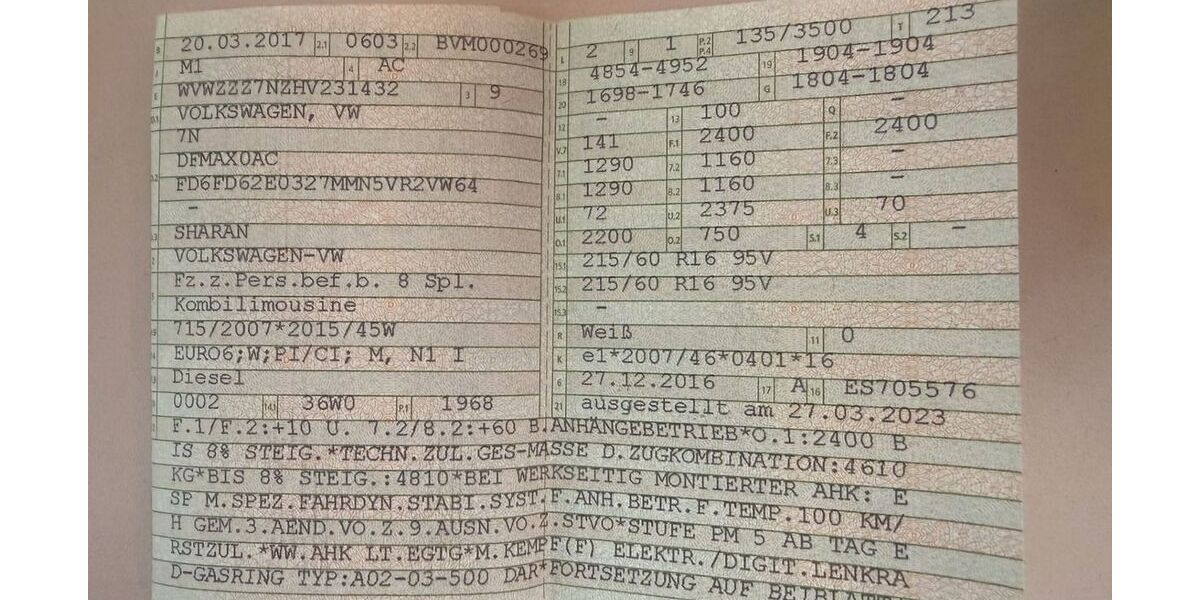 B 20.03.2017 2.1 0603 2.2 BVM000269
J M1 4 AC
E WVWZZZ7NZHV231432 3 9
D.1 VOLKSWAGEN, VW
7N
DFMAX0AC
D.2 FD6FD62E0327MMN5VR2VW64
–
SHARAN
VOLKSWAGEN-VW
Fz.z.Pers.bef.b. 8 Spl.
Kombilimousine
715/2007*2015/45W
EURO6;W;PI/CI; M, N1 I
Diesel
0002 14.1 36W0 P.1 1968
L 2 9 1 P.2 P.4 135/3500 T 213
18 4854-4952 19 1904-1904
20 1698-1746 G 1804-1804
12 – 13 100 Q –
V.7 141 F.1 2400 F.2 2400
7.1 1290 7.2 1160 7.3 –
8.1 1290 8.2 1160 8.3 –
U.1 72 U.2 2375 U.3 70
O.1 2200 O.2 750 S.1 4 S.2 –
15.1 215/60 R16 95V
15.2 215/60 R16 95V
15.3 –
R Weiß 11 0
K e1*2007/46*0401*16
6 27.12.2016 17 A 16 ES705576
21 ausgestellt am 27.03.2023
F.1/F.2:+10 U. 7.2/8.2:+60 B.ANHÄNGEBETRIEB*O.1:2400 B
IS 8% STEIG.*TECHN.ZUL.GES-MASSE D.ZUGKOMBINATION:4610
KG*BIS 8% STEIG.:4810*BEI WERKSEITIG MONTIERTER AHK: E
SP M.SPEZ.FAHRDYN.STABI.SYST.F.ANH.BETR.F.TEMP.100 KM/
H GEM.3.AEND.VO.Z.9.AUSN.VO.Z.STVO*STUFE PM 5 AB TAG E
RSTZUL.*WW.AHK LT.EGTG*M.KEMPF(F) ELEKTR./DIGIT.LENKRA
D-GASRING TYP:A02-03-500 DAR*FORTSETZUNG AUF